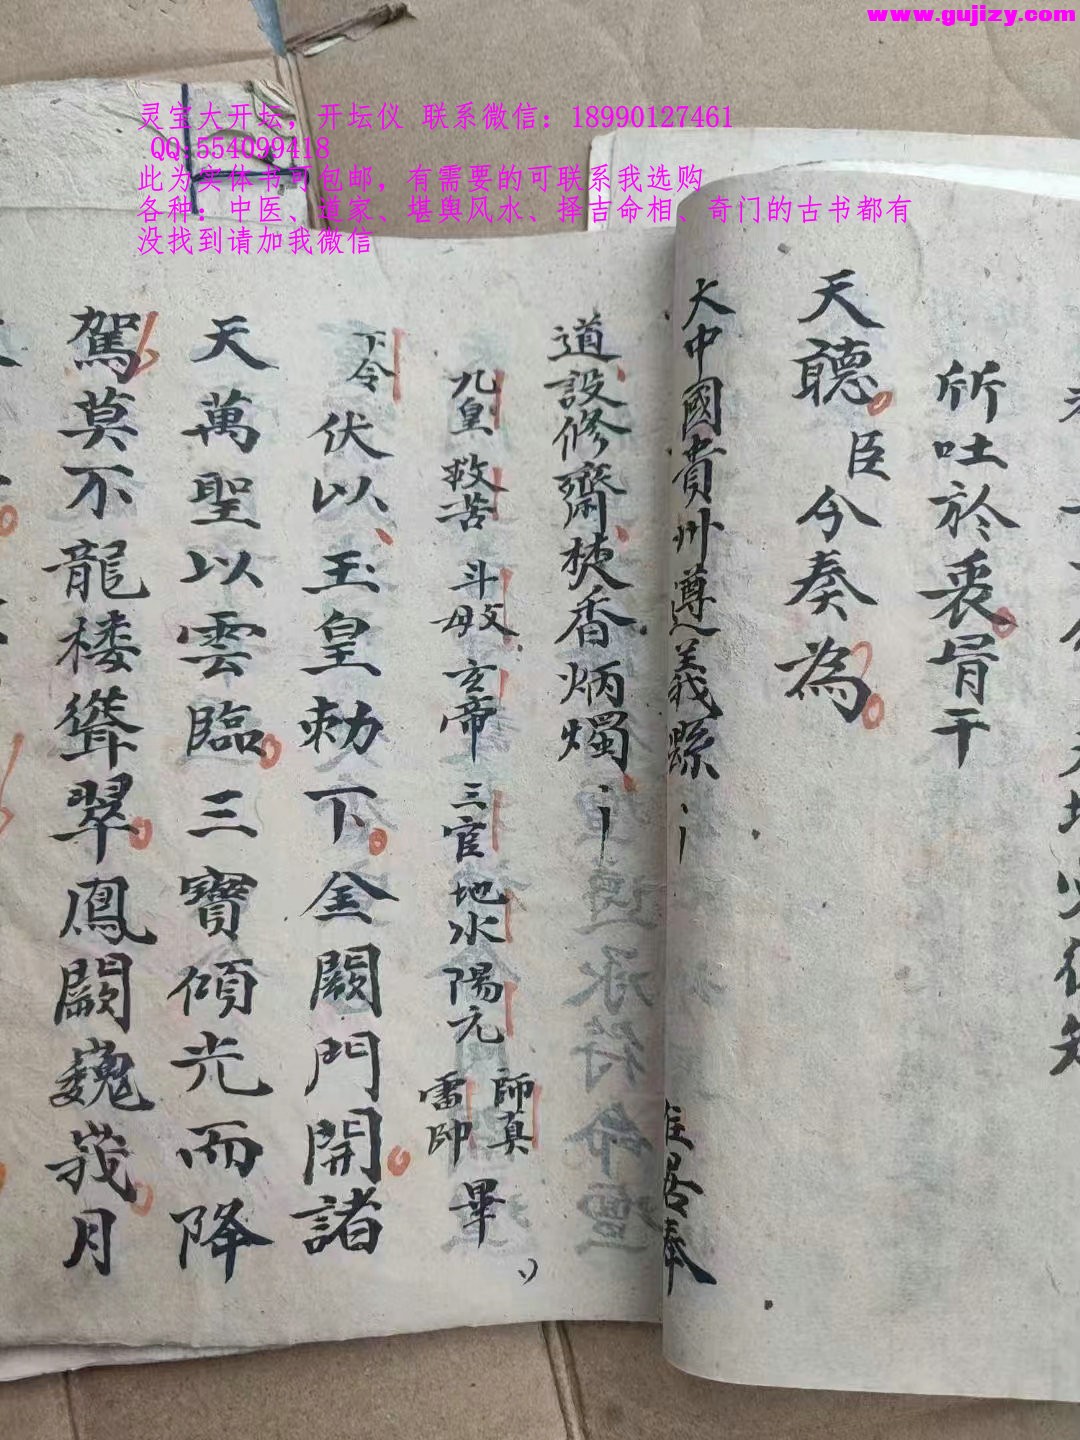 www.gujizy.com
灵宝大开坛，开坛仪 联系微信：18990127461
QQ:554099418
此为实体书可包邮，有需要的可联系我选购
各种：中医、道家、堪舆风水、择吉命相、奇门的古书都有
没找到请加我微信
所吐於衷肩干
天聽臣今奏為
大中國貴州遵義縣
居奉
道設修齋焚香炳燭
九皇 救苦 斗母 玄帝 三官 地水陽元 師真 雷帥 畢
下令 伏以玉皇勅下金闕門開諸
天萬聖以雲臨三寶傾光而降
駕莫不龍楼聳翠鳳闕巍峩月